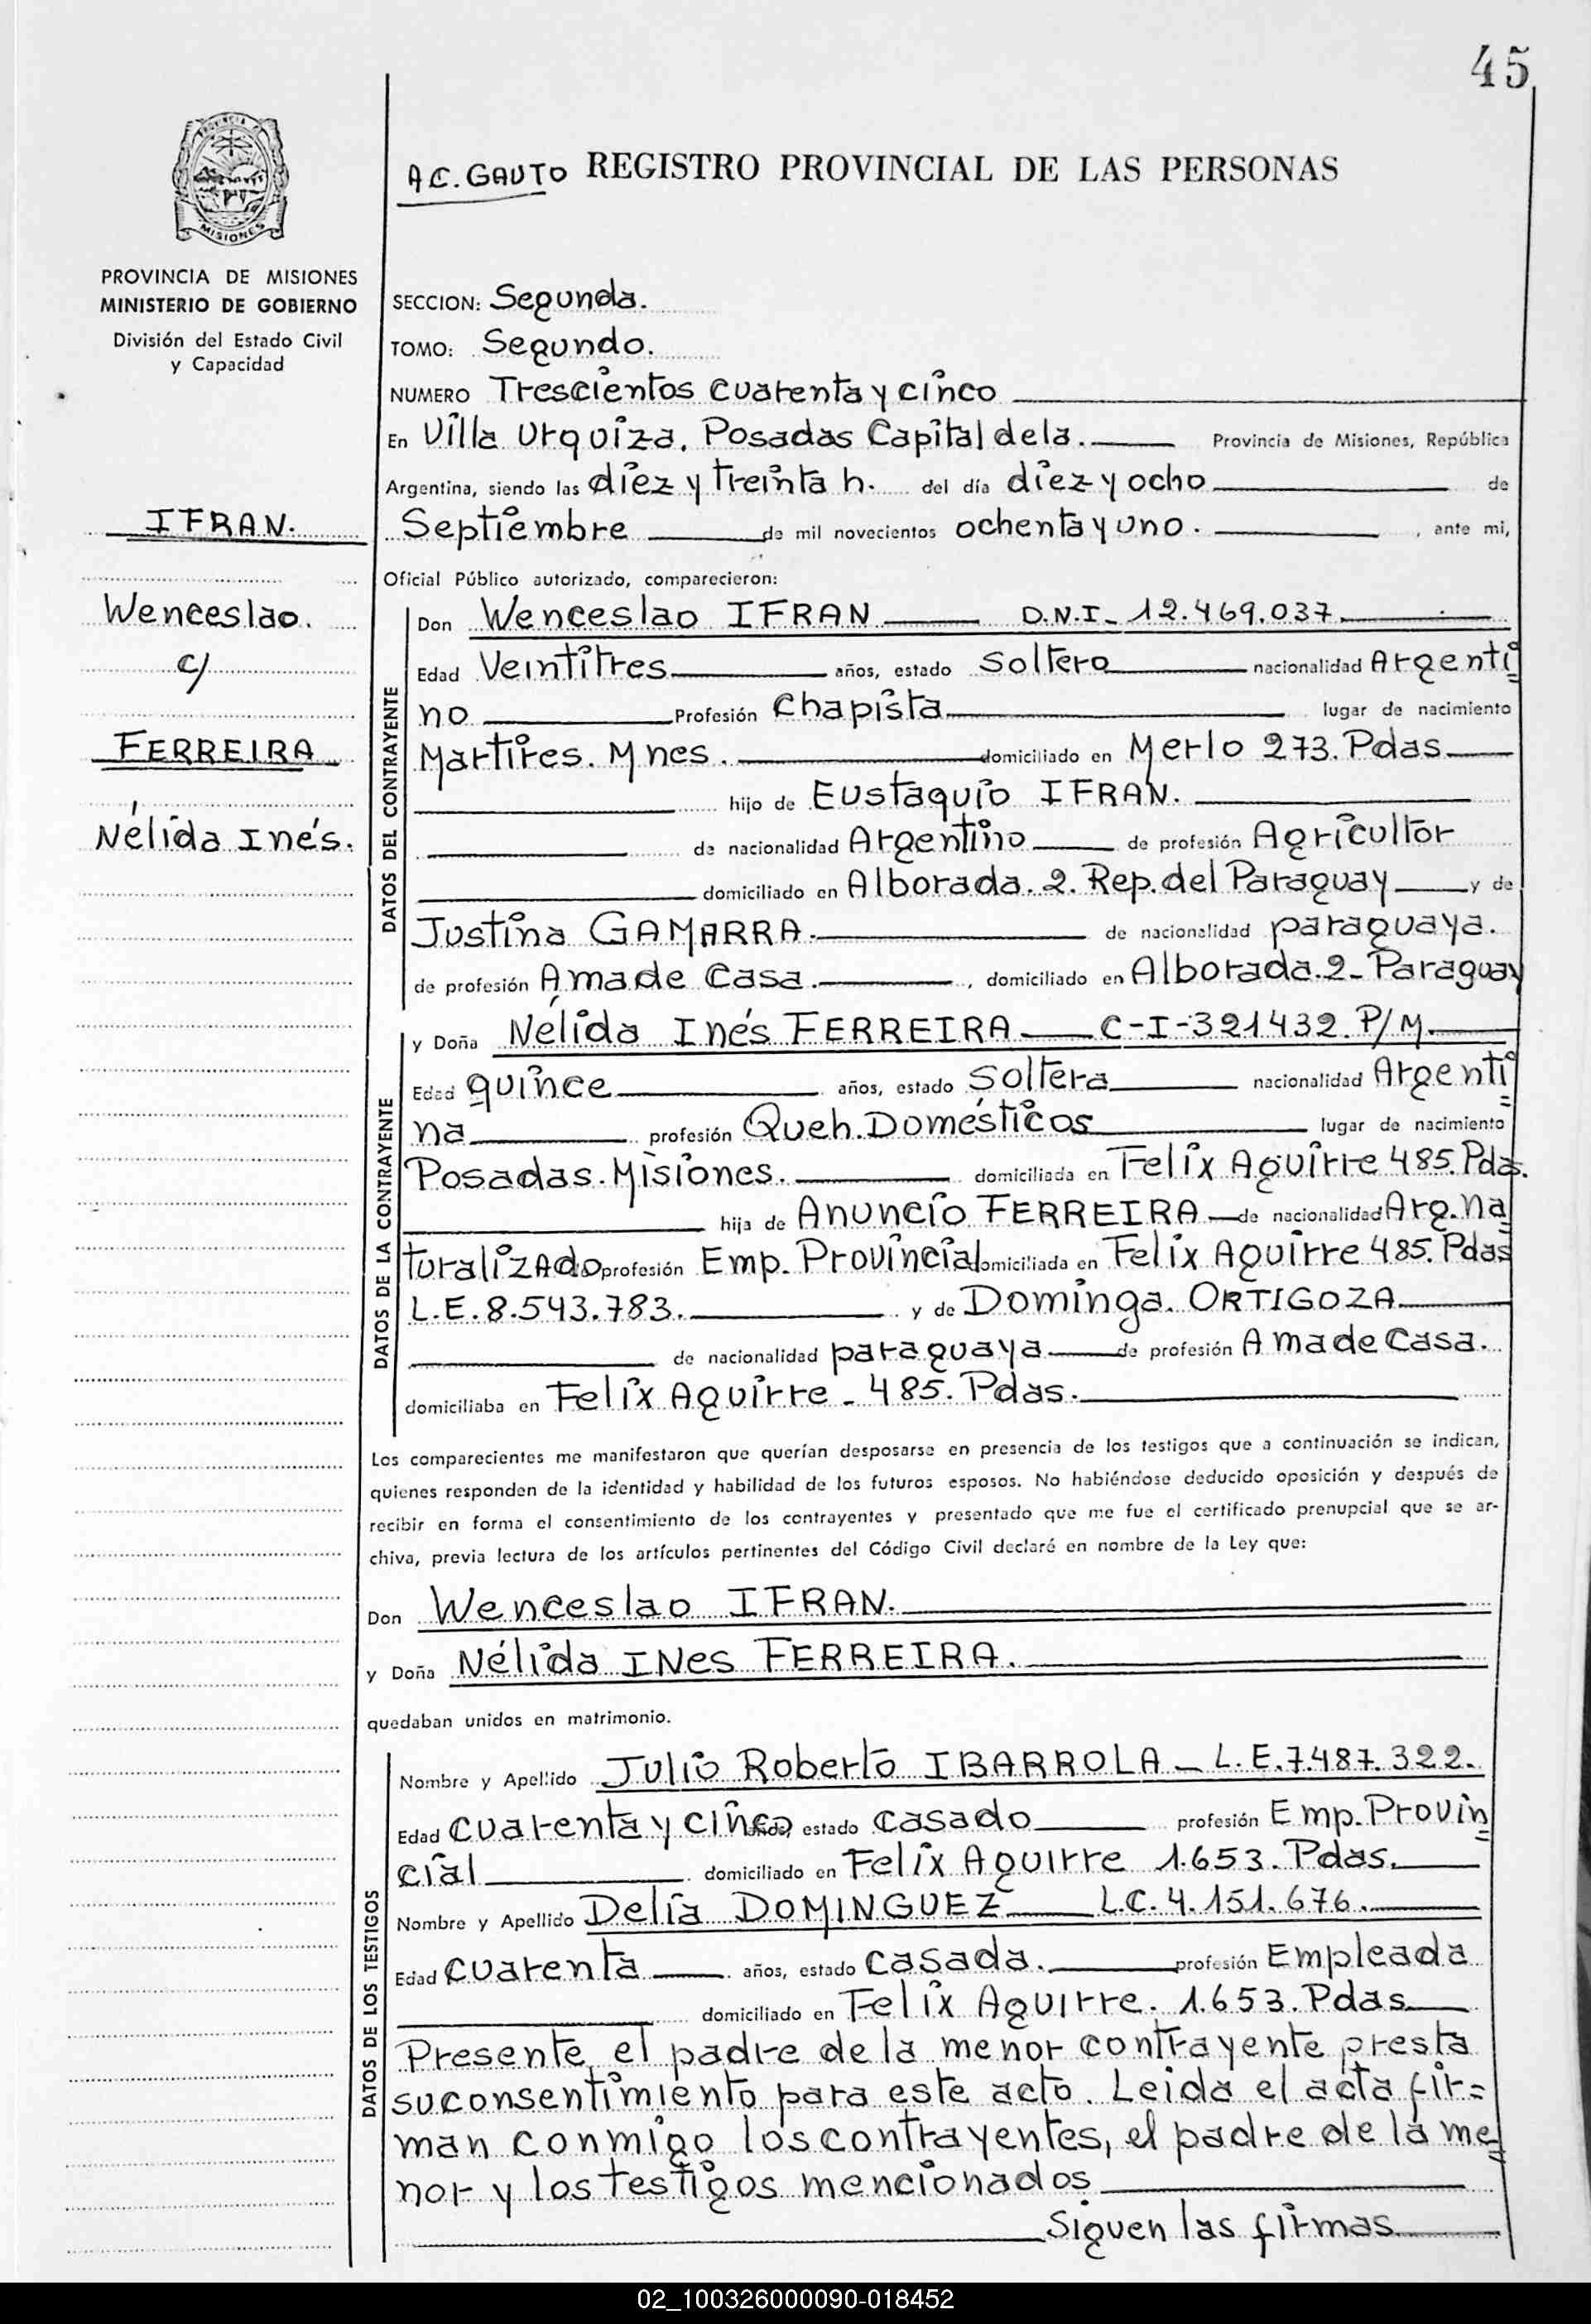 45
A.C. GAUTO REGISTRO PROVINCIAL DE LAS PERSONAS
PROVINCIA DE MISIONES
MINISTERIO DE GOBIERNO
División del Estado Civil
y Capacidad
IFRAN.
Wenceslao.
c/
FERREIRA
Nélida Inés.
SECCION: Segunda.
TOMO: Segundo.
NUMERO Trescientos cuarenta y cinco
En Villa Urquiza. Posadas Capital de la. Provincia de Misiones, República
Argentina, siendo las diez y treinta h. del día diez y ocho de
Septiembre de mil novecientos ochenta y uno. , ante mi,
Oficial Público autorizado, comparecieron:
DATOS DEL CONTRAYENTE
Don Wenceslao IFRAN D.N.I- 12.469.037.
Edad Veintitres años, estado Soltero nacionalidad Argenti
no Profesión Chapista lugar de nacimiento
Martires. Mnes. domiciliado en Merlo 273. Pdas
hijo de Eustaquio IFRAN.
de nacionalidad Argentino de profesión Agricultor
domiciliado en Alborada. 2. Rep. del Paraguay y de
Justina GAMARRA. de nacionalidad paraguaya.
de profesión Ama de Casa. , domiciliado en Alborada. 2- Paraguay
DATOS DE LA CONTRAYENTE
y Doña Nélida Inés FERREIRA C-I-321432. P/M.
Edad quince años, estado Soltera nacionalidad Argenti
na profesión Queh. Domésticos lugar de nacimiento
Posadas. Misiones. domiciliada en Felix Aguirre 485. Pdas.
hija de Anuncio FERREIRA de nacionalidad Arg. Na
turalizado profesión Emp. Provincial domiciliada en Felix Aguirre 485. Pdas
L.E. 8.543.783. y de Dominga. ORTIGOZA
de nacionalidad paraguaya de profesión Ama de Casa.
domiciliaba en Felix Aguirre - 485. Pdas.
Los comparecientes me manifestaron que querían desposarse en presencia de los testigos que a continuación se indican,
quienes responden de la identidad y habilidad de los futuros esposos. No habiéndose deducido oposición y después de
recibir en forma el consentimiento de los contrayentes y presentado que me fue el certificado prenupcial que se ar-
chiva, previa lectura de los artículos pertinentes del Código Civil declaré en nombre de la Ley que:
Don Wenceslao IFRAN.
y Doña Nélida INes FERREIRA.
quedaban unidos en matrimonio.
DATOS DE LOS TESTIGOS
Nombre y Apellido Julio Roberto IBARROLA - L.E. 7.487.322.
Edad cuarenta y cinco años, estado casado profesión Emp. Provin
cial domiciliado en Felix Aguirre 1.653. Pdas.
Nombre y Apellido Delia DOMINGUEZ L.C. 4.151.676.
Edad cuarenta años, estado casada. profesión Empleada
domiciliado en Felix Aguirre. 1.653. Pdas
Presente, el padre de la menor contrayente presta
su consentimiento para este acto. Leida el acta fir=
man conmigo los contrayentes, el padre de la me
nor y los testigos mencionados
Siguen las firmas
02_100326000090-018452